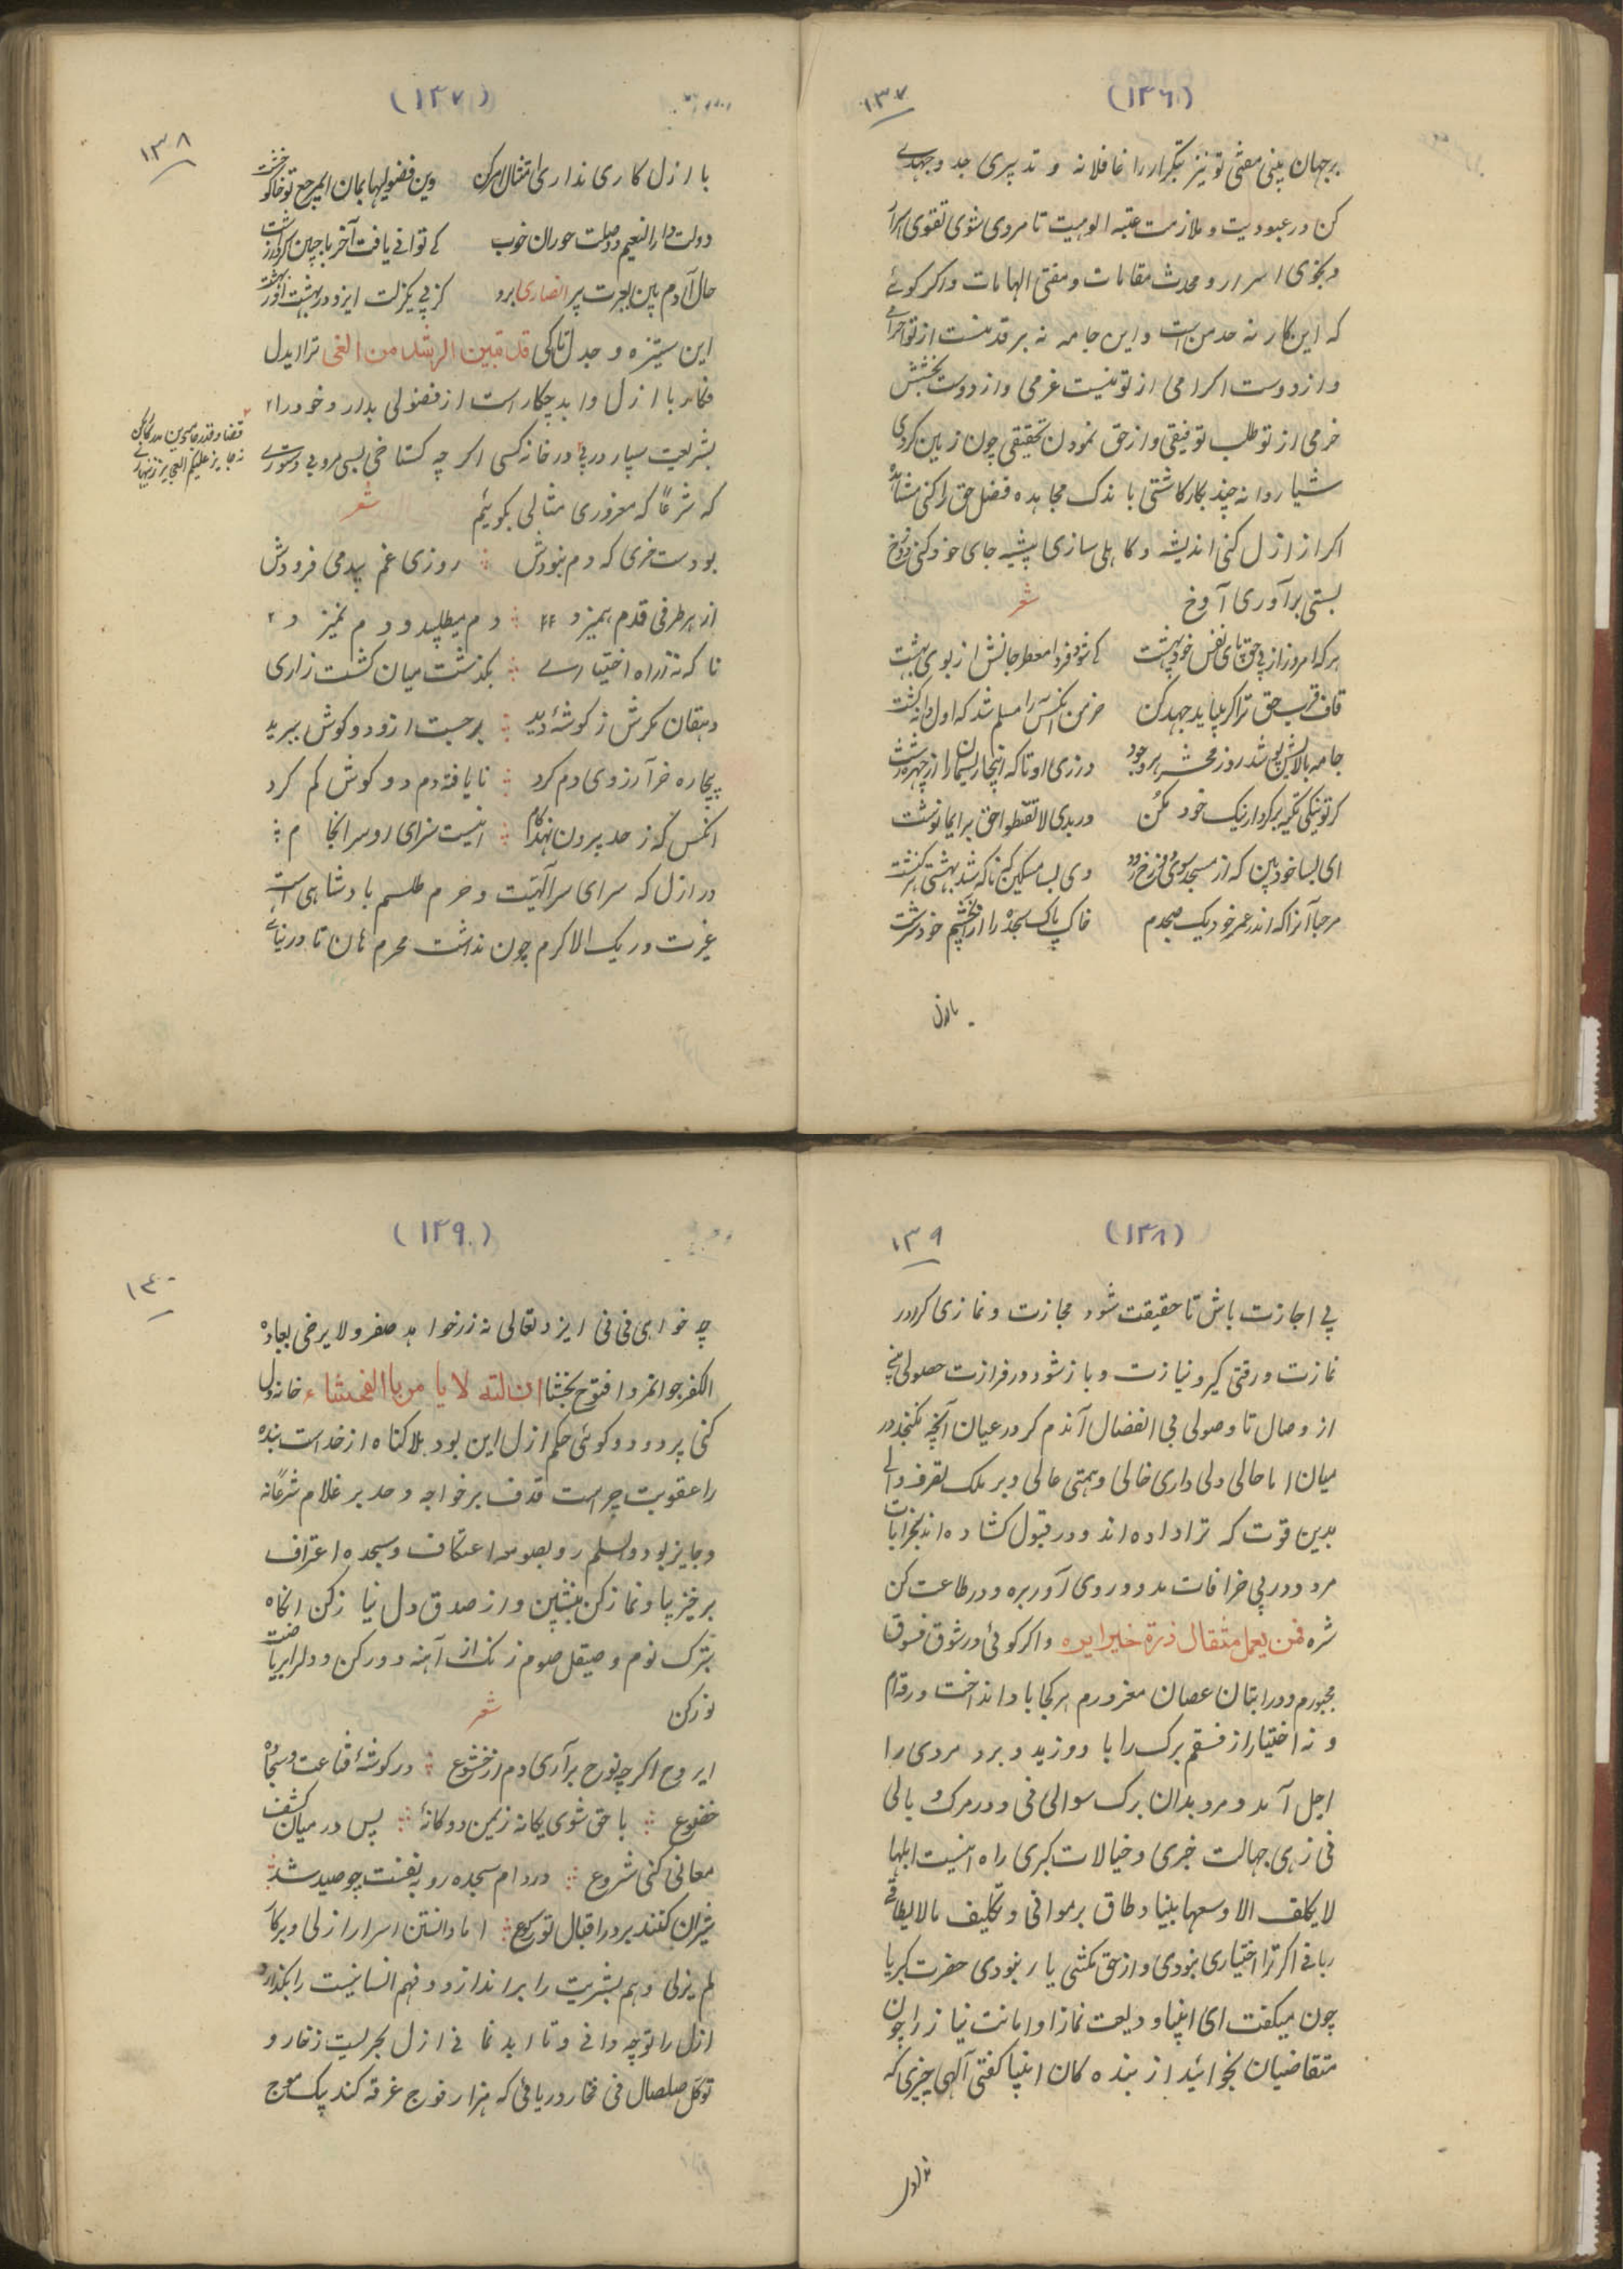 (۱۳۶)
۱۳۷
بر جهان بینی مفتی تو نیز بتکرار را غافلانه و تدبیری جد و جهدی
کن در عبودیت و ملازمت عتبه الوهیت تا مردی شوی تقوی
اسرار و محدث مقامات و مفتی الهامات و اگر گوئے
که این کار نه حد من است و این جامه نه بر قد منست از تو
و از دوست اکرامی از تو نیست غرمی و از دوست بخشش
خرمی از تو طلب توفیقی و از حق نمودن تحقیقی چون زمین کردی
شیار و دانه چند بکار کاشتی باندک مجاهده فضل حق را کنی مشاهده
اکر از ازل کنی اندیشه و کاهلی سازی پیشه جای خود کنی دوزخ
بستی برآوری آوخ
شعر
هر که امروز از پی حق پای نفس خود بهشت کی شود فردا معطر جانش از بوی بهشت
قاف قرب حق ترا کر بباید جهد کن خرمن آنکس را مسلم شد که اول دانه کشت
جامه بالایش پوشد روز محشر درزی او تا که اینجا ریسمان را
کر تو نیکی تکیه بر کردار نیک خود مکن ور بدی لا تقنطوا حق برایمانوشت
ای بسا خودبین که از مسجد سوی دوزخ رود وی بسا مسکین که ناکه شد بهشتی
مرحبا آنرا که اندر عمر خود یک صبحدم خاک پاک سجده را از چشم خود سرشت
با ازل
(۱۳۷)
۱۳۸
با ازل کاری نداری امتثال امر کن وین فضولیها بمان
دولت دار النعیم و وصلت حوران خوب کے توانے یافت آخر با چنین کردار زشت
حال آدم بین بعبرت پیر انصاری برو کز پی یک زلت ایزد در بهشت
این ستیزه و جدل تا کی قد تبین الرشد من الغی ترا ایدل
با ازل و ابد چکار است از فضولی بدار و خود را
بشریعت سپار در پی در خانه کسی اکر چه کستاخی بسی مرو بی دستوری
که شرعا که معذوری مثالی بکوئیم
شعر
بودست خری که دم نبودش روزی غم بیدمی فزودش
از هر طرفی قدم همیزد دم میطلبید و دم نمیزد
ناکه نه ز راه اختیارے بکذشت میان کشت زاری
دهقان مکرش ز کوشهٔ دید برجست ازو دو کوش ببرید
بیچاره خر آرزوی دم کرد نایافته دم دو کوش کم کرد
آنکس که ز حد برون نهد کام اینست سزای او سرانجام
در ازل که سرای سر آلهیت و حرم طلسم بادشاهی است
غیرت وربک الاکرم چون نذاشت محرم هان تا
(۱۳۸)
۱۳۹
پی اجازت باش تا حقیقت شود مجازت و نمازی کردد
نمازت و رقتی کیرد نیازت و باز شود در فرازت حصولی
از وصال تا وصولی بی انفصال آندم کردد عیان آنچه نکنجد در
میان اما حالی دلی داری خالی و همتی عالی و بر ملک تصرف والی
بدین قوت که ترا داده اند و در قبول کشاده اند بخرابات
مرو و در پی خرافات مدو و روی آور بره و در طاعت کن
شره فمن یعمل مثقال ذرة خیرا یره و اکر کوئی در شوق فسوق
مجبورم و در ابتان عصیان معذورم هر کجا باد انداخت ورقم
و نه اختیار از فسقم برک را باد وزید و برد مردی را
اجل آمد و مرد بدان برک سوالی فی و در مرک وبالی
فی زهی جهالت خبری و خیالات کبری راه اینست ابلها
لا یکلف الا وسعها بنیاد طاق بر موافی و تکلیف مالا یطاق
ربانی اکر ترا اختیاری نبودی و از حق بکشتی یار نبودی حضرت کبریا
چون میکفت ای انبیا ودیعت نماز و امانت نیاز را چون
متقاضیان بخوائید از بنده کان انبیا کفتی آلهی چیزی که
(۱۳۹)
۱۴۰
چه خواهی فی فی ایزد تعالی نه زر خواهد و لا یرضی بعباده
الکفر جوانمردا فتوح بخشا ان الله لا یامر باالفحشاء خانه دل
کنی پر دود و کوئی حکم ازل این بود بلا کناه از خداست بنده
را عقوبت چراست قذف بر خواجه و حد بر غلام شرعا نه
و جایز بود والسلم رو بصومعه اعتکاف و سجده اعتراف
برخیز بپا و نماز کن بنشین و از صدق دل نیاز کن آنکاه
بترک نوم و صیقل صوم زنک از آهنه دور کن و دل را بریاضت
نور کن
شعر
ایروح اکر چو نوح برآری دم از خشوع در کوشهٔ قناعت و سجادهٔ
خضوع با حق شوی یکانه زین دو کانه پس در میان کشف
معانی کنی شروع در دام سجده روبه نفست چو صید شد
شیران کنند بر در اقبال تو رکوع اما دانستن اسرار ازلی و
لم یزلی وهم بشریت را براندازد و فهم انسانیت را بکذارد
ازل را تو چه دانی و تا ابد نمانی ازل بحریست زخار و
تو کل صلصال فی فخار دریائی که هزار فوج غرقه کند بیک موج